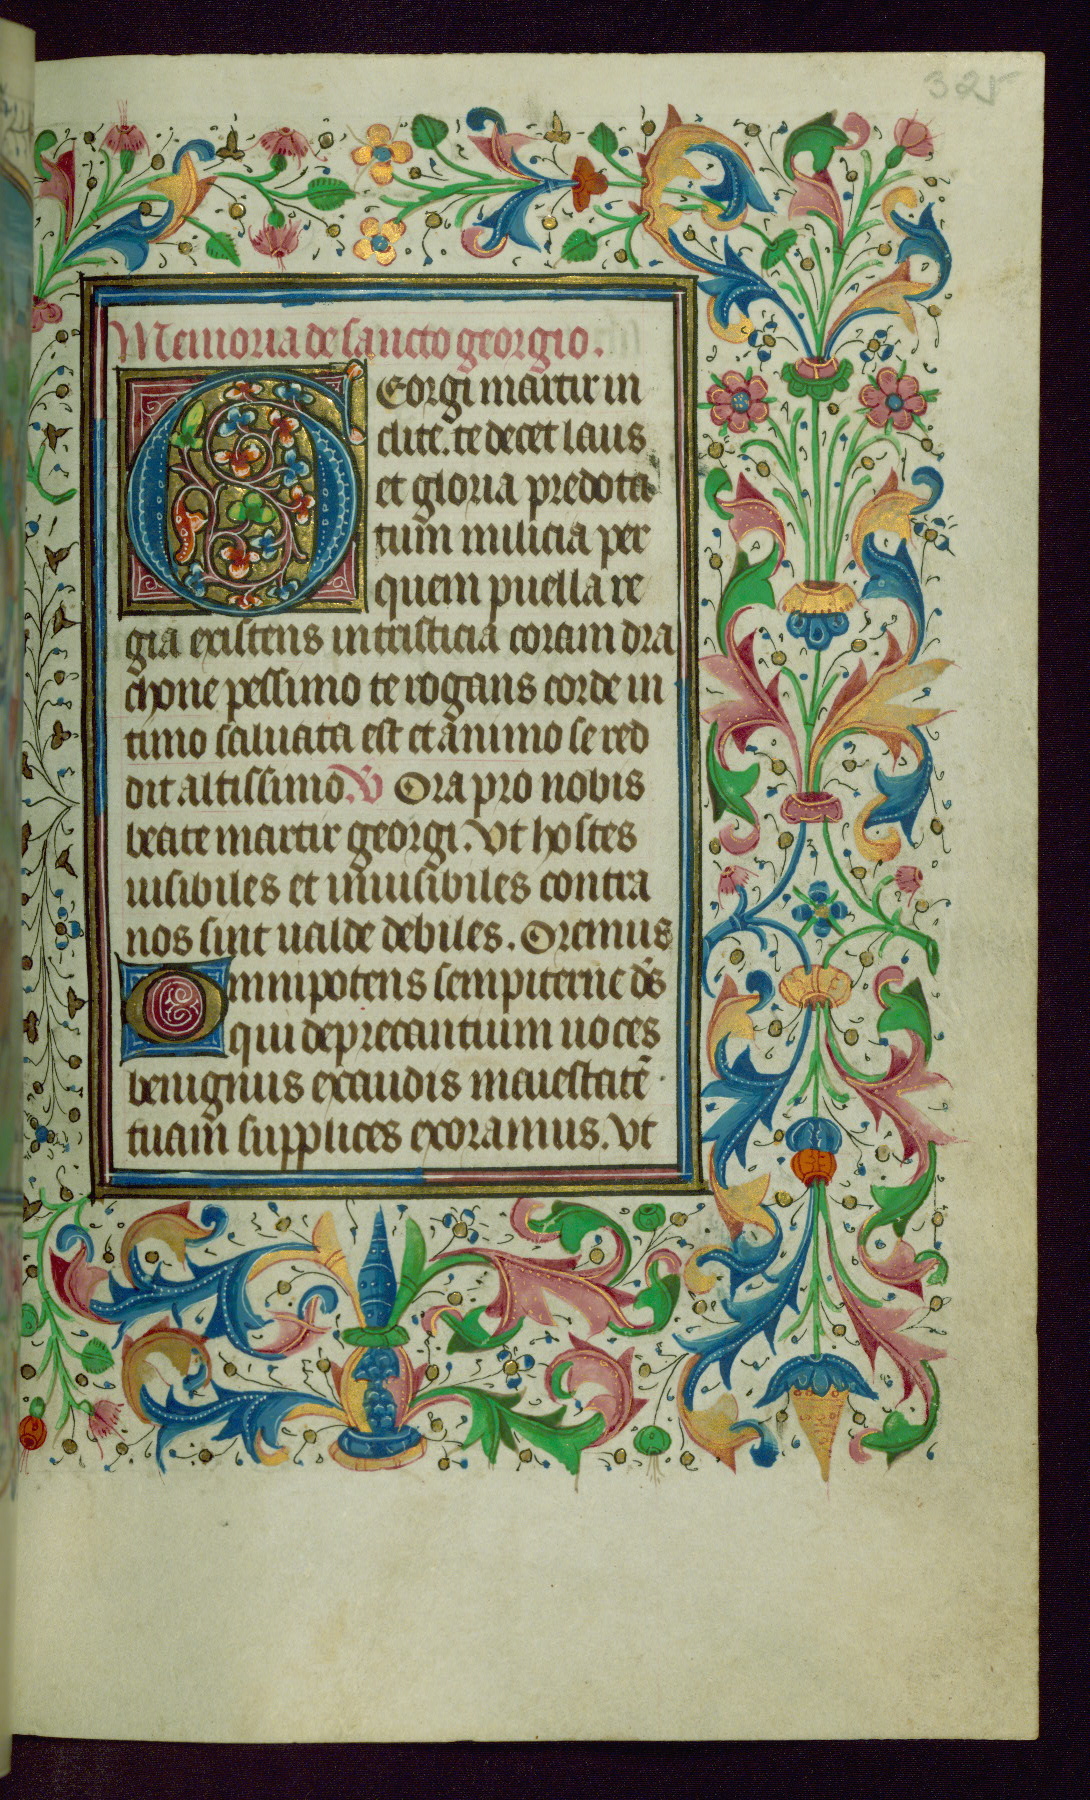 32r
Memoria de sancto georgio.
Georgi martir in
clite. te decet laus
et gloria predota
tum milicia per
quem puella re
gia existens in tristicia coram dra
chone pessimo te rogans corde in
timo saluata est et animo se red
dit altissimo. V Ora pro nobis
beate martir georgi. Vt hostes
uisibiles et inuisibiles contra
nos sint ualde debiles. Oremus
Omnipotens sempiterne ds̄
qui deprecantium uoces
benignius exaudis maiestatē
tuam supplices exoramus. vt